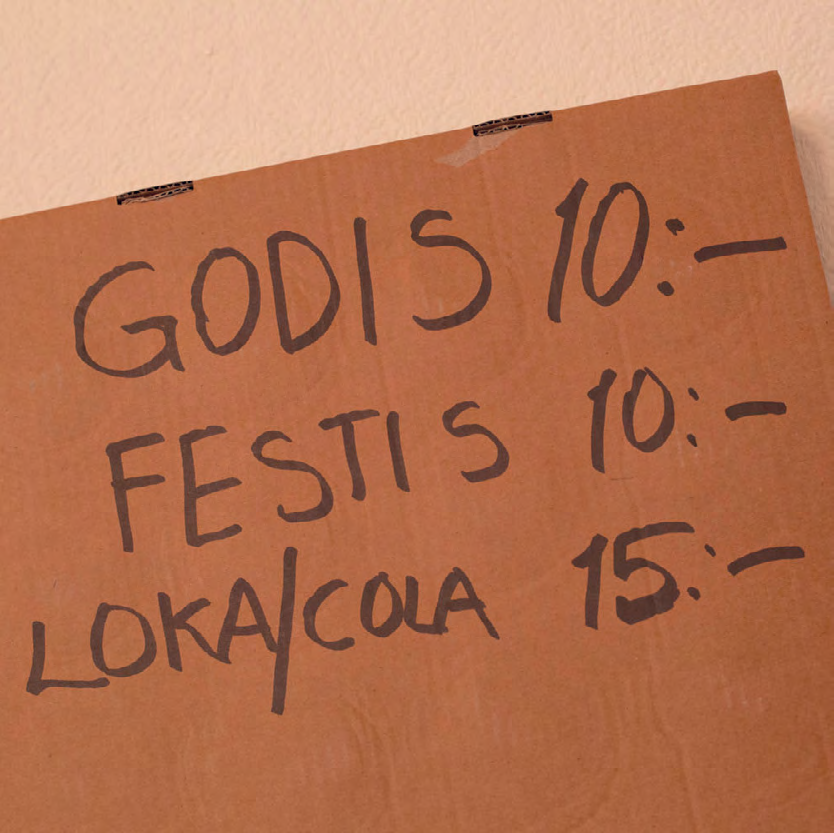 GODIS 10:-
FESTIS 10:-
LOKA/COLA 15:-